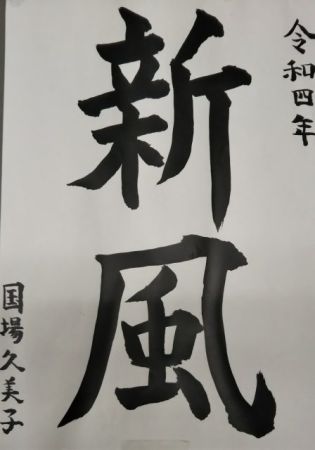 令和四年
新風
国場久美子